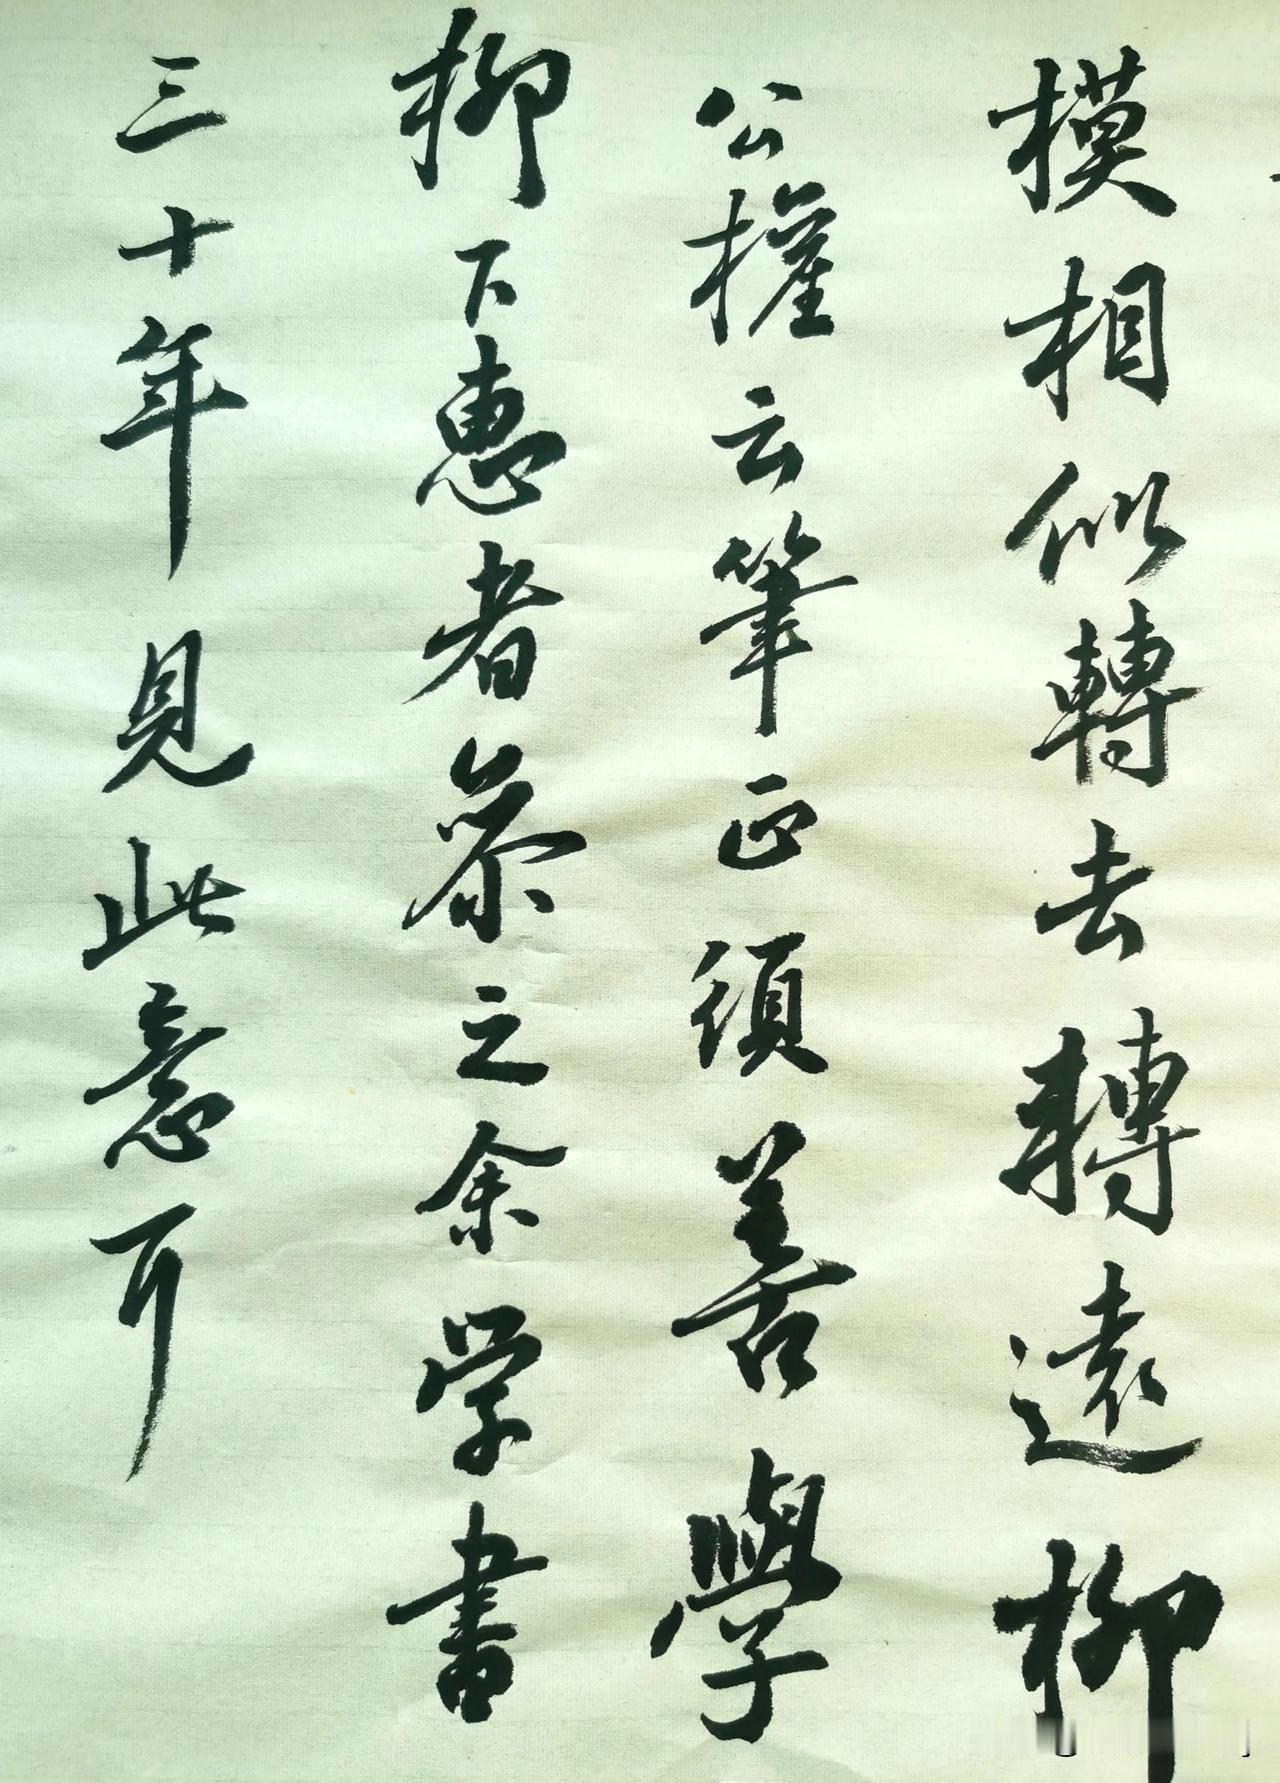 模相似轉去轉遠柳
公權云筆正須善學
柳下惠者參之余学書
三十年見此意耳